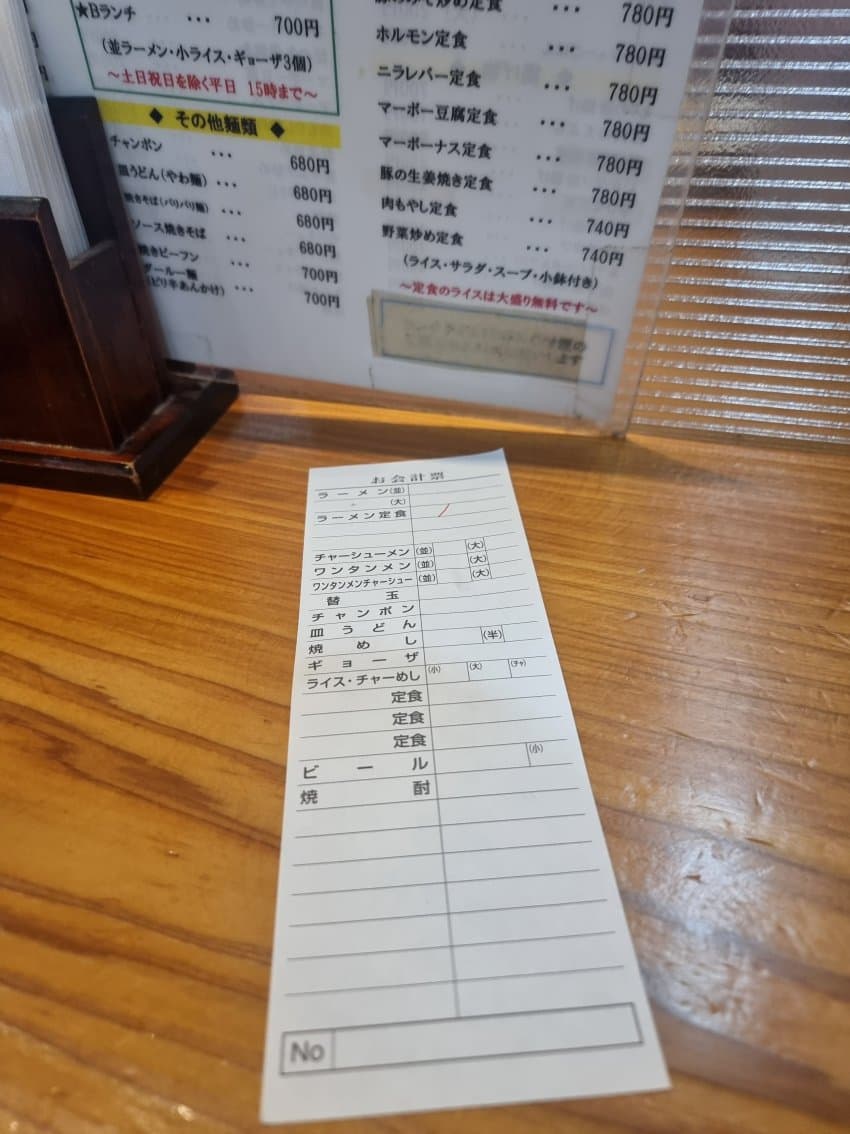 ★Bランチ ・・・ 700円
(並ラーメン・小ライス・ギョーザ3個)
～土日祝日を除く平日 15時まで～
◆ その他麺類 ◆
チャンポン ・・・ 680円
皿うどん(やわ麺) ・・・ 680円
焼きそば(パリパリ麺) ・・・ 680円
ソース焼きそば ・・・ 680円
焼きビーフン ・・・ 700円
ダールー麺
(ピリ辛あんかけ) 700円
炒め定食 780円
ホルモン定食 ・・・ 780円
ニラレバー定食 ・・・ 780円
マーボー豆腐定食 ・・・ 780円
マーボーナス定食 ・・・ 780円
豚の生姜焼き定食 ・・・ 780円
肉もやし定食 ・・・ 740円
野菜炒め定食 ・・・ 740円
(ライス・サラダ・スープ・小鉢付き)
～定食のライスは大盛り無料です～
お会計票
ラーメン(並)
〃 (大)
ラーメン定食
チャーシューメン (並) (大)
ワンタンメン (並) (大)
ワンタンメンチャーシュー (並) (大)
替玉
チャンポン
皿うどん
焼めし (半)
ギョーザ
ライス・チャーめし (小) (大) (チャ)
定食
定食
定食
ビール (小)
焼酎
No